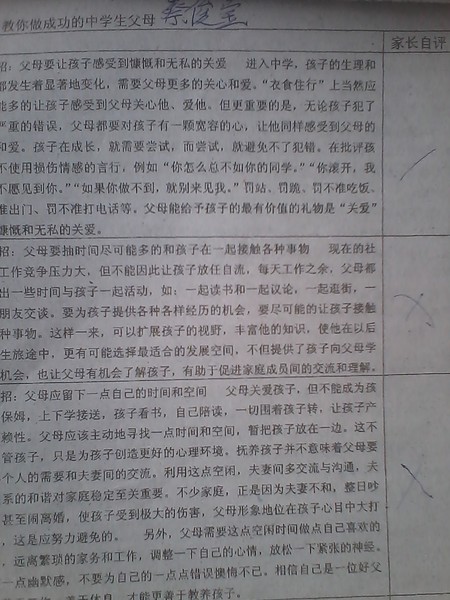 教你做成功的中学生父母 蔡俊宝
家长自评
招：父母要让孩子感受到慷慨和无私的关爱 进入中学，孩子的生理和
都发生着显著地变化，需要父母更多的关心和爱。“衣食住行”上当然应
能多的让孩子感受到父母关心他、爱他。但更重要的是，无论孩子犯了
严重的错误，父母都要对孩子有一颗宽容的心，让他同样感受到父母的
和爱。孩子在成长，就需要尝试，而尝试，就避免不了犯错。在批评孩
不使用损伤情感的言行，例如“你怎么总不如你的同学。”“你滚开，我
不愿见到你。”“如果你做不到，就别来见我。”罚站、罚跪、罚不准吃饭、
准出门、罚不准打电话等。父母能给予孩子的最有价值的礼物是“关爱”
慷慨和无私的关爱。
招：父母要抽时间尽可能多的和孩子在一起接触各种事物 现在的社
工作竞争压力大，但不能因此让孩子放任自流，每天工作之余，父母都
出一些时间与孩子一起活动，如：一起读书和一起议论，一起逛街，一
朋友交谈。要为孩子提供各种各样经历的机会，要尽可能的让孩子接触
种事物。这样一来，可以扩展孩子的视野，丰富他的知识，使他在以后
生旅途中，更有可能选择最适合的发展空间，不但提供了孩子向父母学
机会，也让父母有机会了解孩子，有助于促进家庭成员间的交流和理解。
招：父母应留下一点自己的时间和空间 父母关爱孩子，但不能成为孩
保姆，上下学接送，孩子看书，自己陪读，一切围着孩子转，让孩子产
赖性。父母应该主动地寻找一点时间和空间，暂把孩子放在一边。这不
管孩子，只是为孩子创造更好的心理环境。抚养孩子并不意味着父母要
个人的需要和夫妻间的交流。利用这点空闲，夫妻间多交流与沟通，夫
系的和谐对家庭稳定至关重要。不少家庭，正是因为夫妻不和，整日吵
甚至闹离婚，使孩子受到极大的伤害，父母形象地位在孩子心目中大打
，这是应努力避免的。 另外，父母需要这点空闲时间做点自己喜欢的
，远离繁琐的家务和工作，调整一下自己的心情，放松一下紧张的神经。
一点幽默感，不要为自己的一点点错误懊悔不已。相信自己是一位好父
善于休息，才能更善于教养孩子。